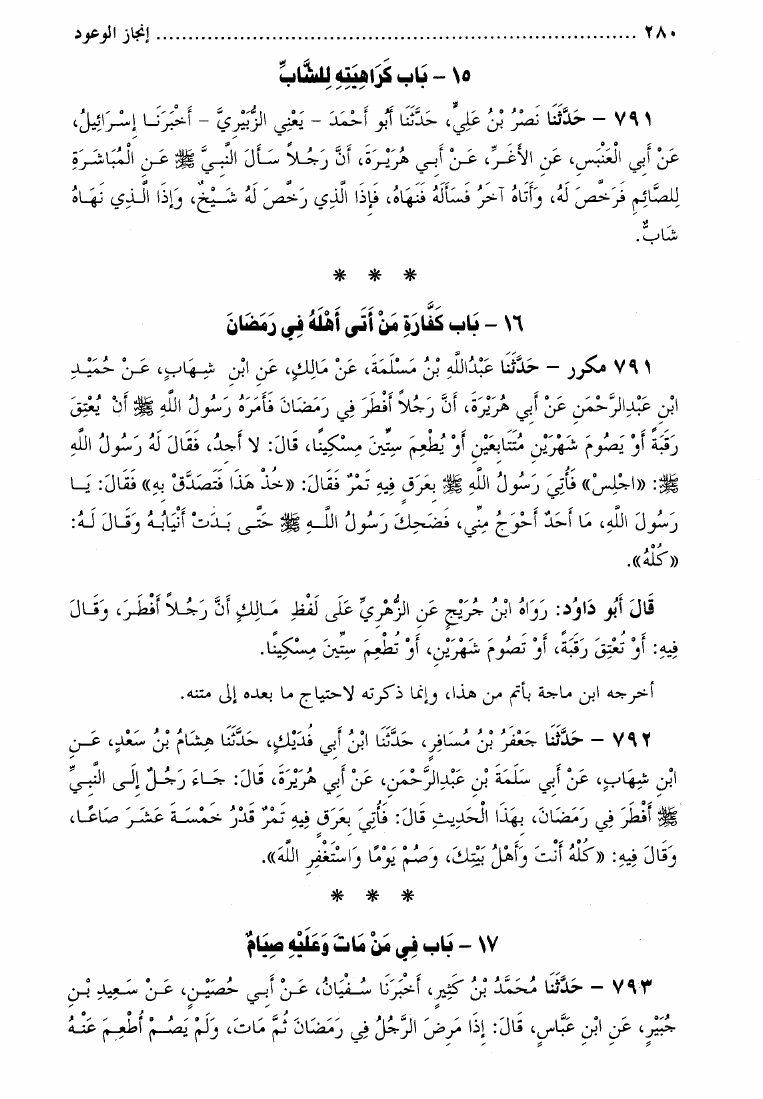 ٢٨٠ ................................................................................ إنجاز الوعود
١٥ – بَاب كَرَاهِيَتِهِ لِلشَّابِّ
٧٩١ – حَدَّثَنَا نَصْرُ بْنُ عَلِيٍّ، حَدَّثَنَا أَبُو أَحْمَدَ – يَعْنِي الزُّبَيْرِيَّ – أَخْبَرَنَا إِسْرَائِيلُ،
عَنْ أَبِي الْعَنْبَسِ، عَنِ الأَغَرِّ، عَنْ أَبِي هُرَيْرَةَ، أَنَّ رَجُلاً سَأَلَ النَّبِيَّ ﷺ عَنِ الْمُبَاشَرَةِ
لِلصَّائِمِ فَرَخَّصَ لَهُ، وَأَتَاهُ آخَرُ فَسَأَلَهُ فَنَهَاهُ، فَإِذَا الَّذِي رَخَّصَ لَهُ شَيْخٌ، وَإِذَا الَّذِي نَهَاهُ
شَابٌّ.
* * *
١٦ – بَاب كَفَّارَةِ مَنْ أَتَى أَهْلَهُ فِي رَمَضَانَ
٧٩١ مكرر – حَدَّثَنَا عَبْدُاللَّهِ بْنُ مَسْلَمَةَ، عَنْ مَالِكٍ، عَنِ ابْنِ شِهَابٍ، عَنْ حُمَيْدِ
ابْنِ عَبْدِالرَّحْمَنِ عَنْ أَبِي هُرَيْرَةَ، أَنَّ رَجُلاً أَفْطَرَ فِي رَمَضَانَ فَأَمَرَهُ رَسُولُ اللَّهِ ﷺ أَنْ يُعْتِقَ
رَقَبَةً أَوْ يَصُومَ شَهْرَيْنِ مُتَتَابِعَيْنِ أَوْ يُطْعِمَ سِتِّينَ مِسْكِينًا، قَالَ: لا أَجِدُ، فَقَالَ لَهُ رَسُولُ اللَّهِ
ﷺ: «اجْلِسْ» فَأُتِيَ رَسُولُ اللَّهِ ﷺ بِعَرَقٍ فِيهِ تَمْرٌ فَقَالَ: «خُذْ هَذَا فَتَصَدَّقْ بِهِ» فَقَالَ: يَا
رَسُولَ اللَّهِ، مَا أَحَدٌ أَحْوَجُ مِنِّي، فَضَحِكَ رَسُولُ اللَّهِ ﷺ حَتَّى بَدَتْ أَنْيَابُهُ وَقَالَ لَهُ:
«كُلْهُ».
قَالَ أَبُو دَاوُد: رَوَاهُ ابْنُ جُرَيْجٍ عَنِ الزُّهْرِيِّ عَلَى لَفْظِ مَالِكٍ أَنَّ رَجُلاً أَفْطَرَ، وَقَالَ
فِيهِ: أَوْ تُعْتِقَ رَقَبَةً، أَوْ تَصُومَ شَهْرَيْنِ، أَوْ تُطْعِمَ سِتِّينَ مِسْكِينًا.
أخرجه ابن ماجة بأتم من هذا، وإنما ذكرته لاحتياج ما بعده إلى متنه.
٧٩٢ – حَدَّثَنَا جَعْفَرُ بْنُ مُسَافِرٍ، حَدَّثَنَا ابْنُ أَبِي فُدَيْكٍ، حَدَّثَنَا هِشَامُ بْنُ سَعْدٍ، عَنِ
ابْنِ شِهَابٍ، عَنْ أَبِي سَلَمَةَ بْنِ عَبْدِالرَّحْمَنِ، عَنْ أَبِي هُرَيْرَةَ، قَالَ: جَاءَ رَجُلٌ إِلَى النَّبِيِّ
ﷺ أَفْطَرَ فِي رَمَضَانَ، بِهَذَا الْحَدِيثِ قَالَ: فَأُتِيَ بِعَرَقٍ فِيهِ تَمْرٌ قَدْرُ خَمْسَةَ عَشَرَ صَاعًا،
وَقَالَ فِيهِ: «كُلْهُ أَنْتَ وَأَهْلُ بَيْتِكَ، وَصُمْ يَوْمًا وَاسْتَغْفِرِ اللَّهَ».
* * *
١٧ – بَاب فِي مَنْ مَاتَ وَعَلَيْهِ صِيَامٌ
٧٩٣ – حَدَّثَنَا مُحَمَّدُ بْنُ كَثِيرٍ، أَخْبَرَنَا سُفْيَانُ، عَنْ أَبِي حُصَيْنٍ، عَنْ سَعِيدِ بْنِ
جُبَيْرٍ، عَنِ ابْنِ عَبَّاسٍ، قَالَ: إِذَا مَرِضَ الرَّجُلُ فِي رَمَضَانَ ثُمَّ مَاتَ، وَلَمْ يَصُمْ أُطْعِمَ عَنْهُ